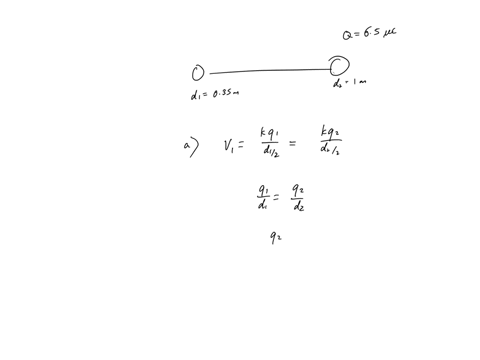 Q = 6.5 μC
d1 = 0.35 m
d2 = 1 m
a) V1 = kq1/(d1/2) = kq2/(d2/2)
q1/d1 = q2/d2
q2